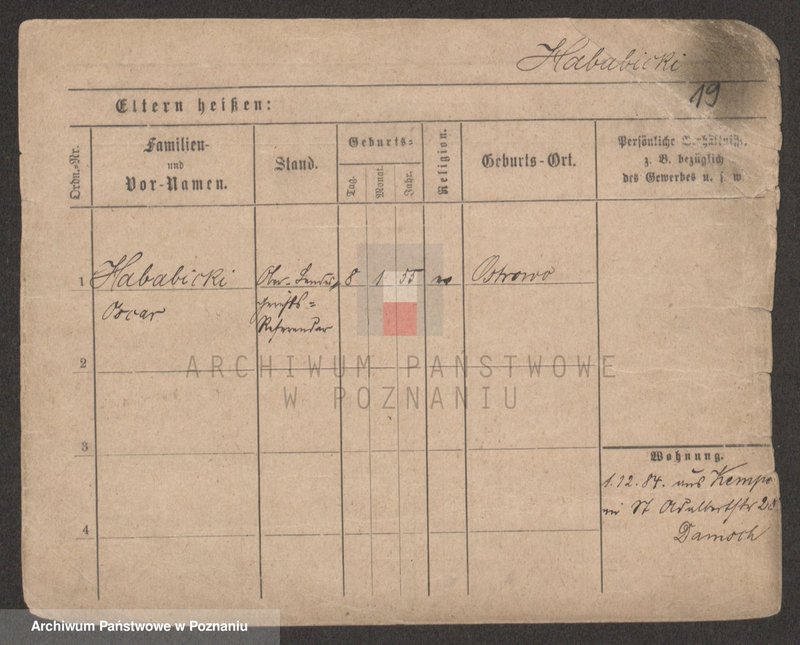 Hababicki
19
Eltern heißen:
Ordn.-Nr.
Familien-
und
Vor-Namen.
Stand.
Geburts-
Tag.
Monat.
Jahr.
Religion.
Geburts-Ort.
Persönliche Verhältnisse.
z. B. bezüglich
des Gewerbes u. s. w.
1 Hababicki Ober-Landes 8 1 55 Ostrowo
Oscar gerichts=
Referendar
2
3
4
Wohnung.
1.12.84. aus Kempe
in St Adalbertstr 28
Damoch
ARCHIWUM PAŃSTWOWE
W POZNANIU
Archiwum Państwowe w Poznaniu